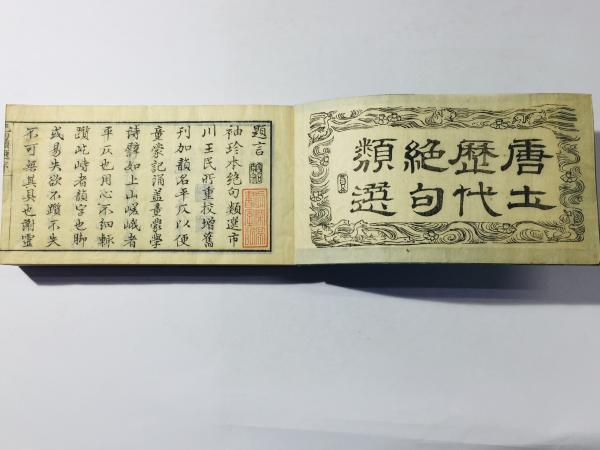 唐土
歴代
絶句
類選
題言
袖珍本絶句類選市
川王民所重校增舊
刊加韻名平仄以便
童蒙記誦蓋童蒙學
詩譬如上山嵯峨者
平仄也用心不細轍
躓此峙者韻字也脚
或易失欲不躓不失
不可無其具也謝靈